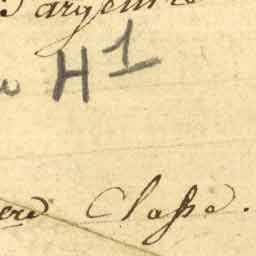 d'argent
H1
ere Classe.